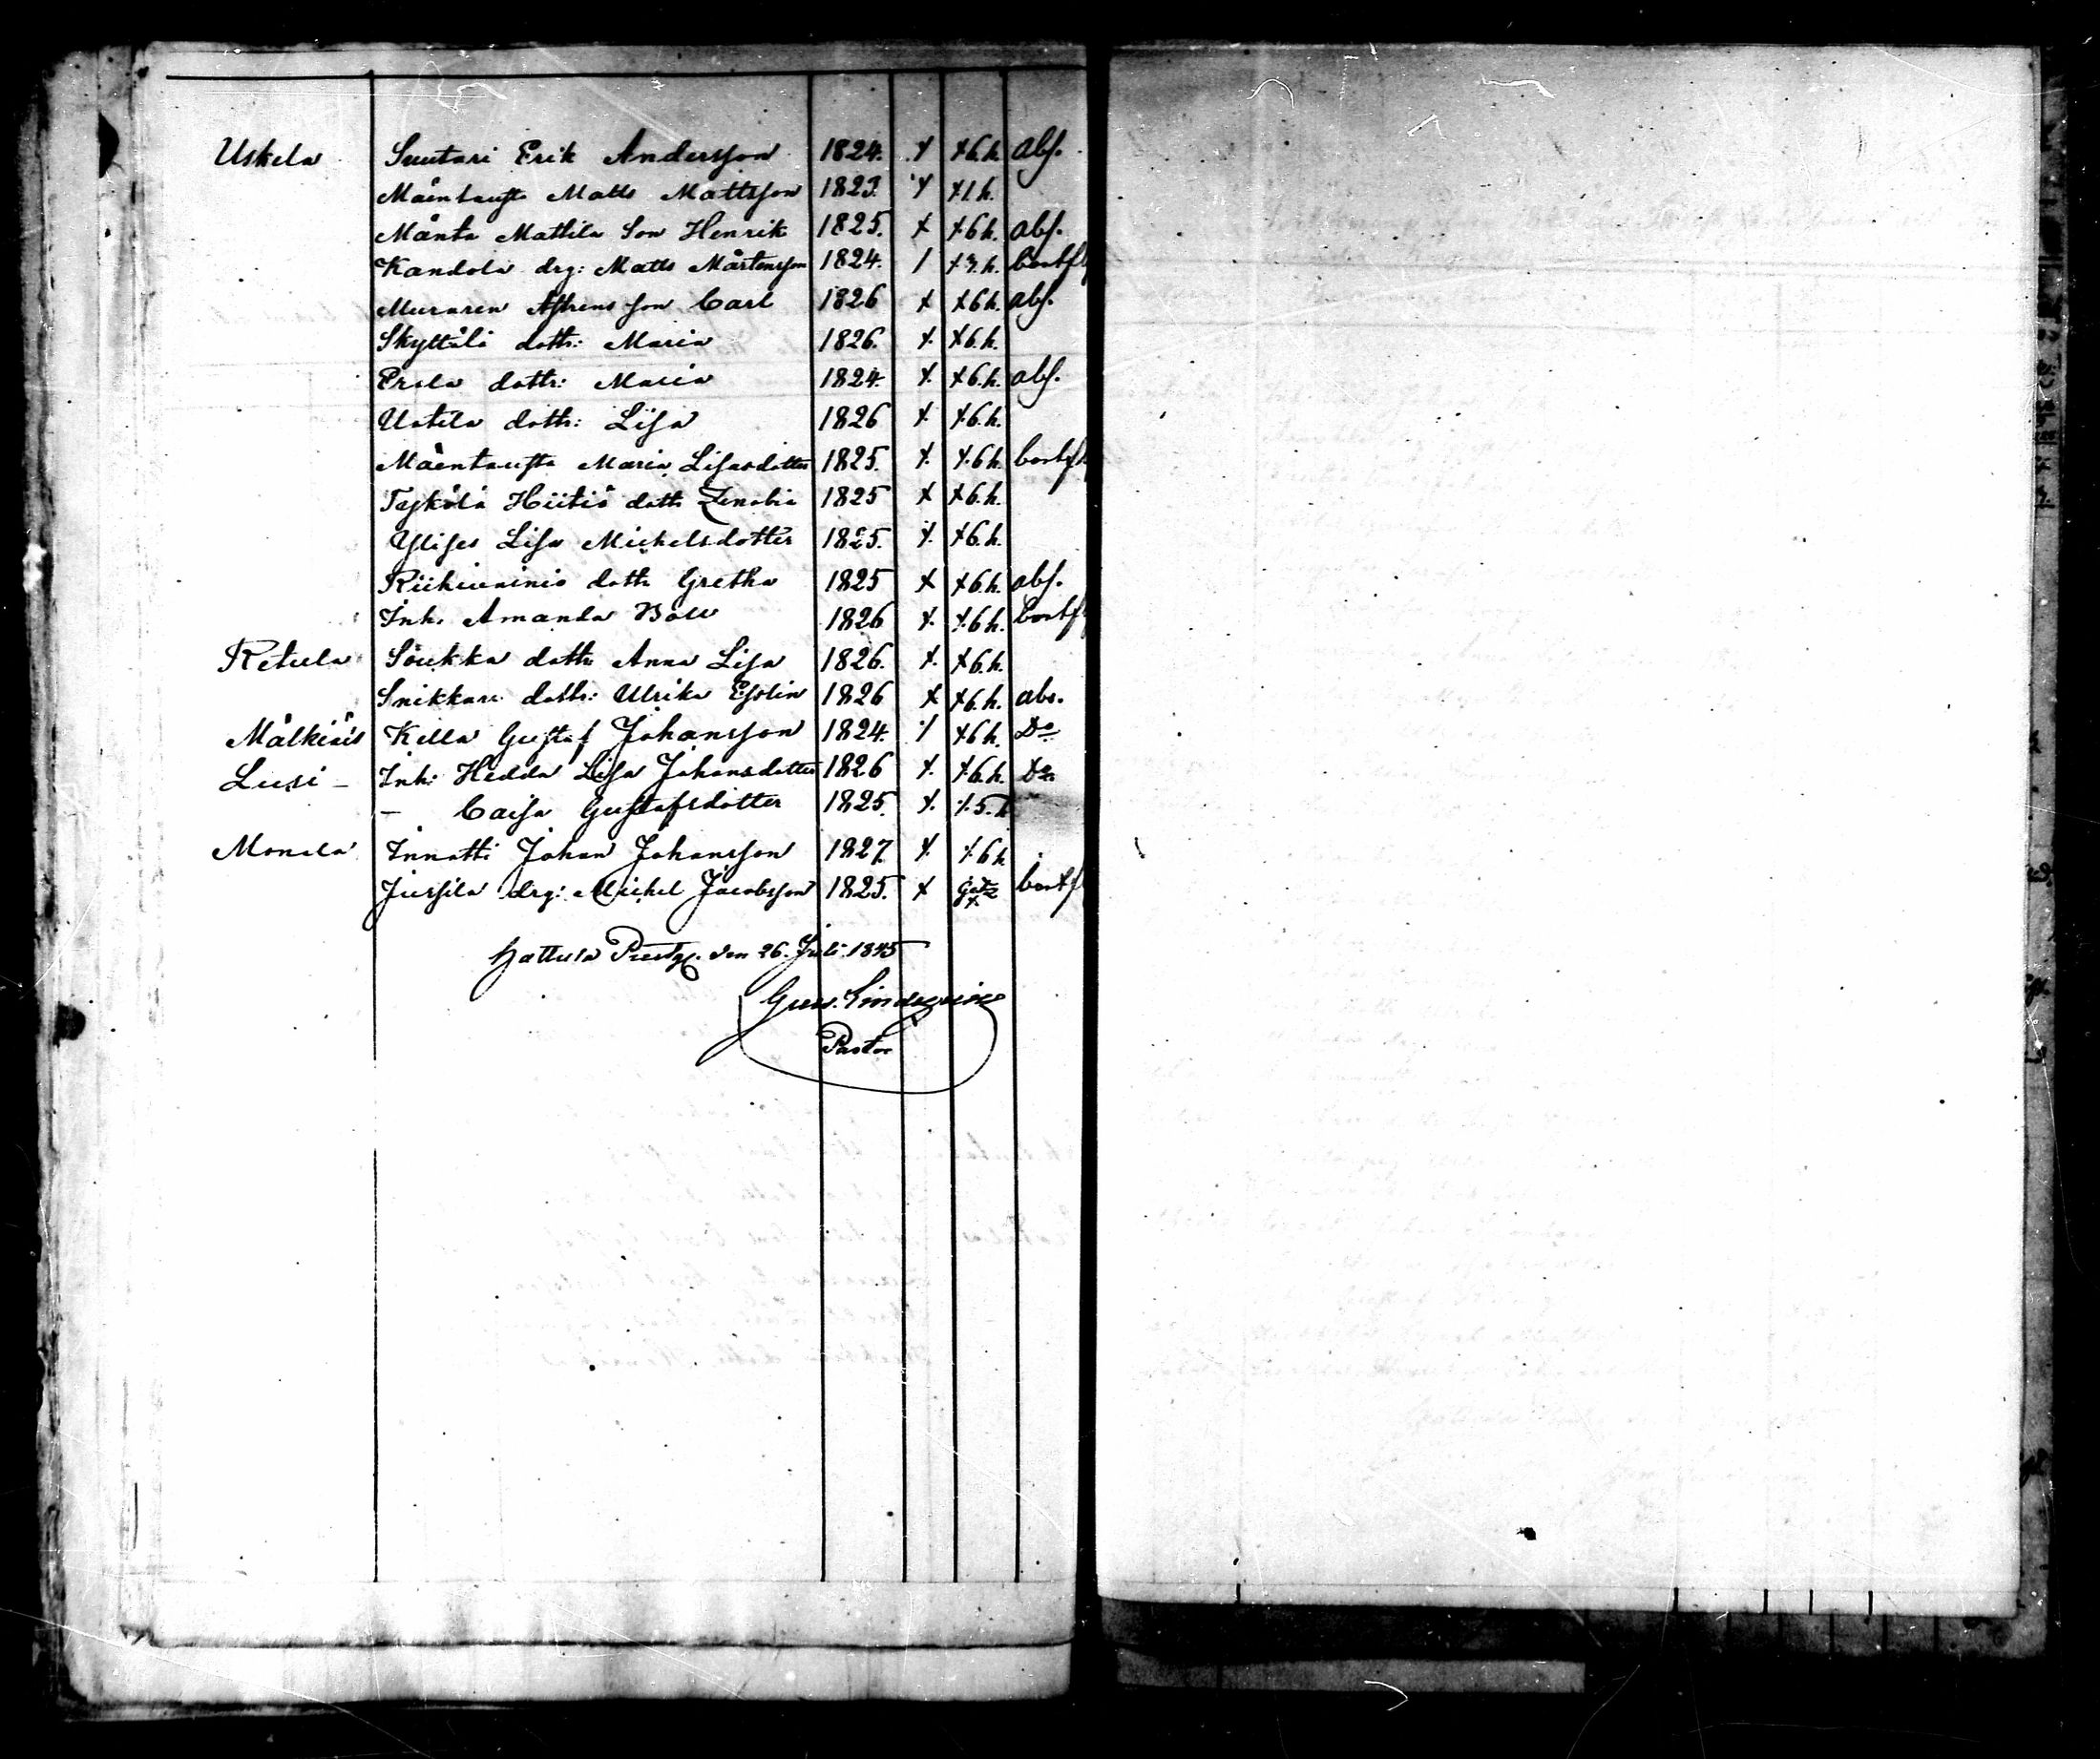 Uskela Suutari Erik Andersson 1824. x x 6. h. abs.
Mäentausta Matts Mattsson 1823. x x 1. h.
Mänta Mattila Son Henrik 1825. x x 6 h. abs.
Kandola drg: Matts Mårtensson 1824. / x 3. h. bortfl
Muraren son Carl 1826 x x 6 h. abs.
Skyttälä dottr: Maria 1826. x. x 6. h.
Erola dottr: Maria 1824. x. x 6. h. abs.
Uotila dottr: Lisa 1826 x. x 6. h.
Mäentausta Maria Lisasdotter 1825. x. x. 6 h. bortfl
Hiitiö dottr Zenobia 1825 x x 6. h.
Lisa Michelsdotter 1825. x. x 6. h.
dottr Gretha 1825 x x 6. h. abs.
Inh. Amanda Boll 1826 x. x. 6 h. bortfl
Retula Söukka dottr Anna Lisa 1826. x. x 6. h.
Snikkari dottr: Ulrika Eholin 1826 x x 6. h. abs.
Mälkiäis Kella Gustaf Johansson 1824. / x 6 h. Do
Lusi - Inh: Hedda Lisa Johansdotter 1826 x. x. 6. h. Do
- Caisa Gustafsdotter 1825. x. x. 5. h
Monala Innatti Johan Johansson 1827. x. x 6 h
Jussila drg: Michel Jacobsson 1825. x bortfl
Hattula Prestg. den 26. Juli 1845
Pastor